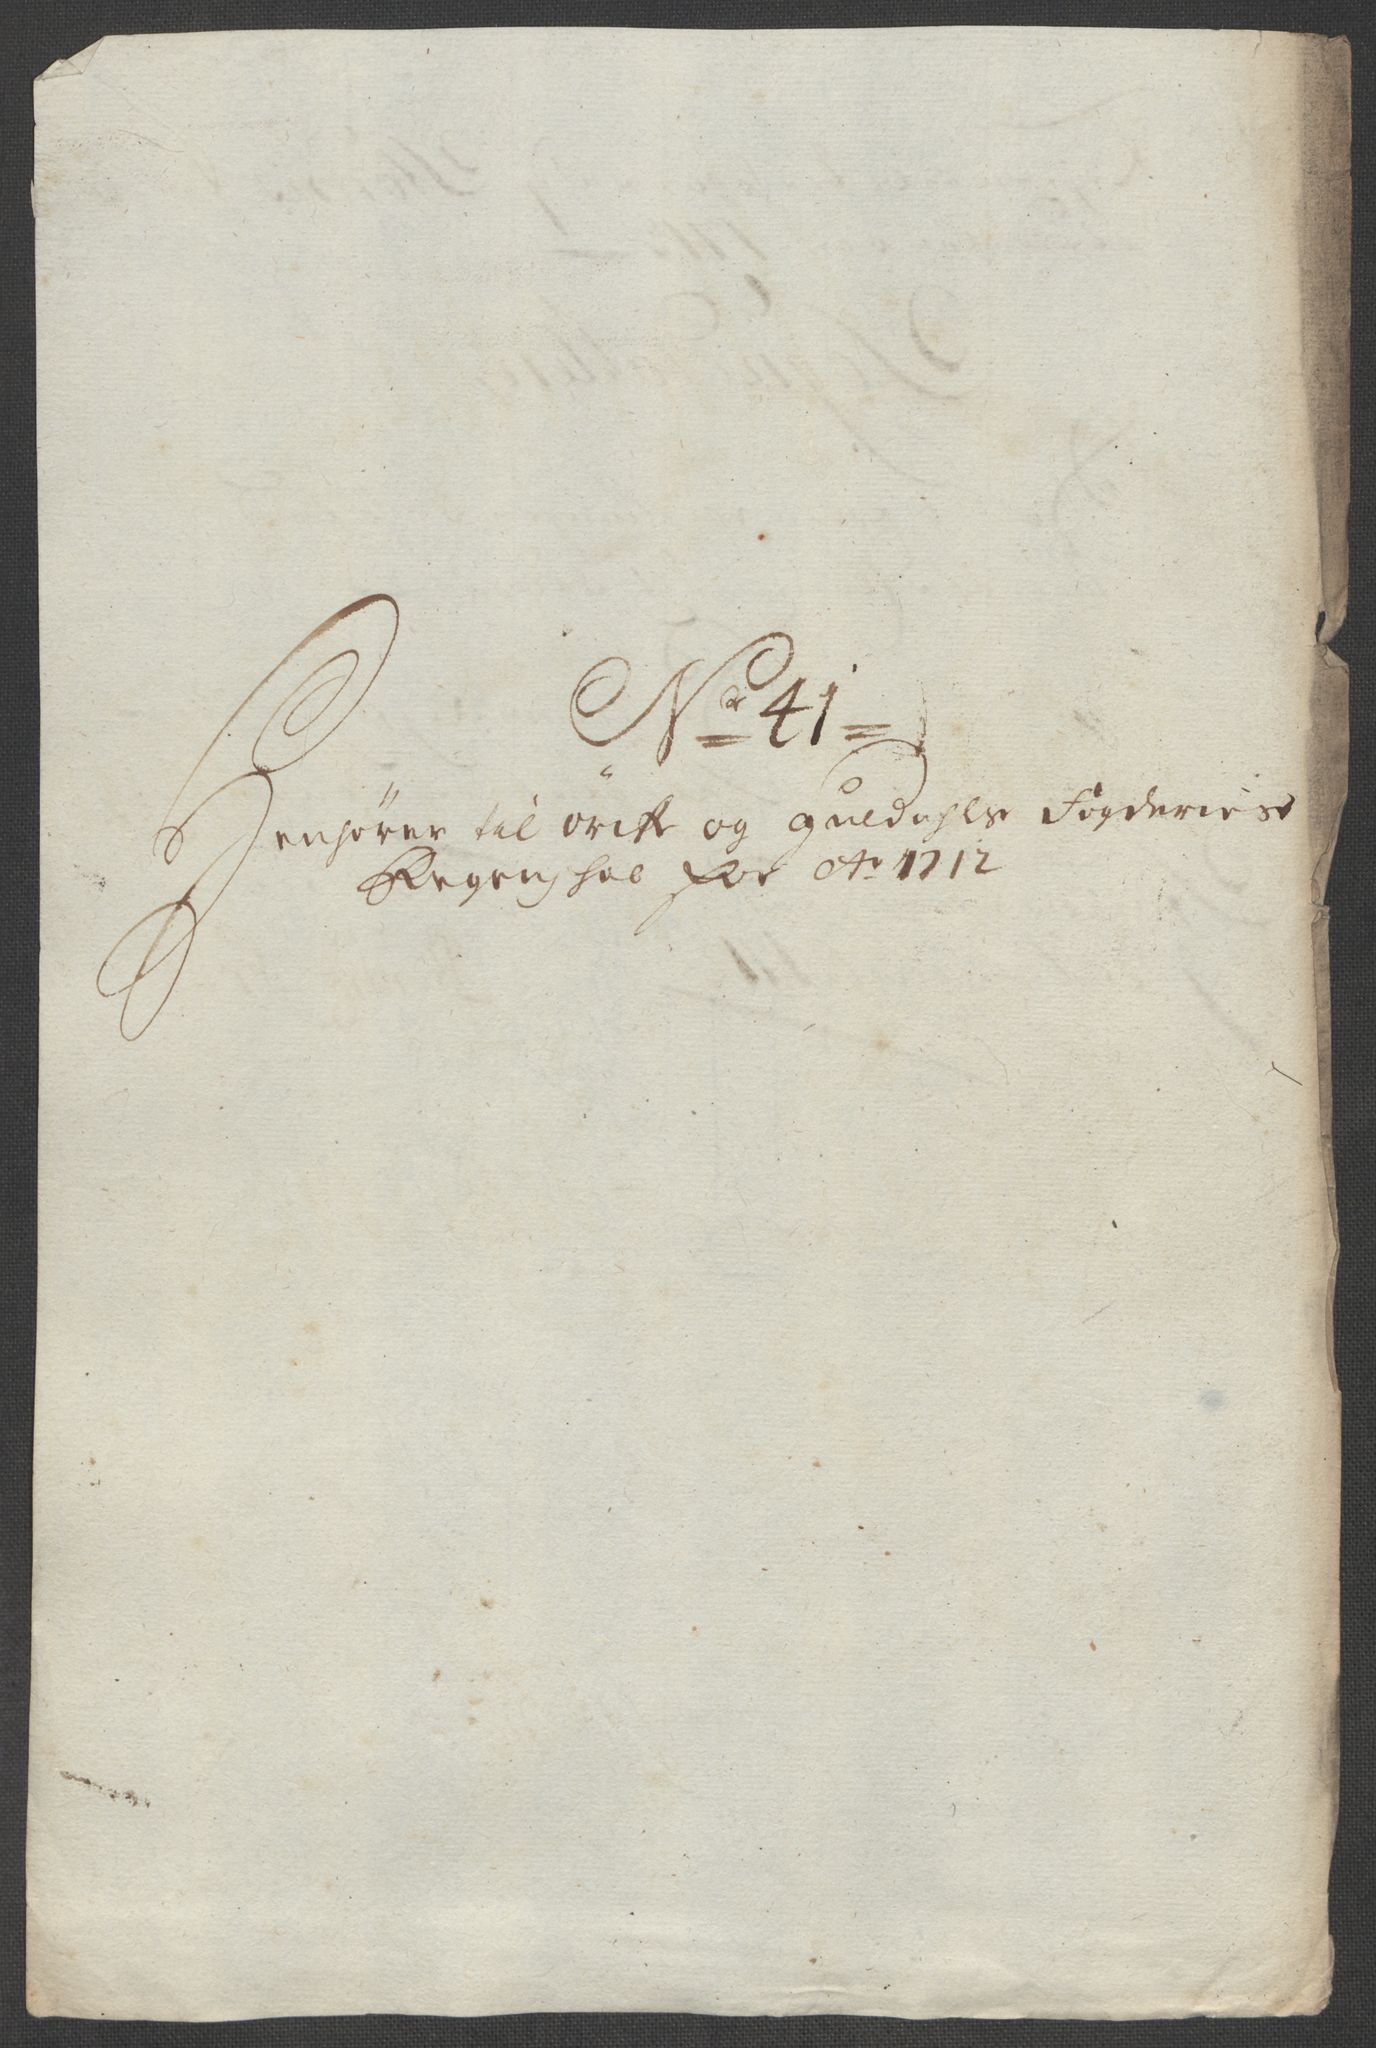 Nr 41
Henhører til Örck og Guldahls Fögderies
Regenschab for Ao 1712